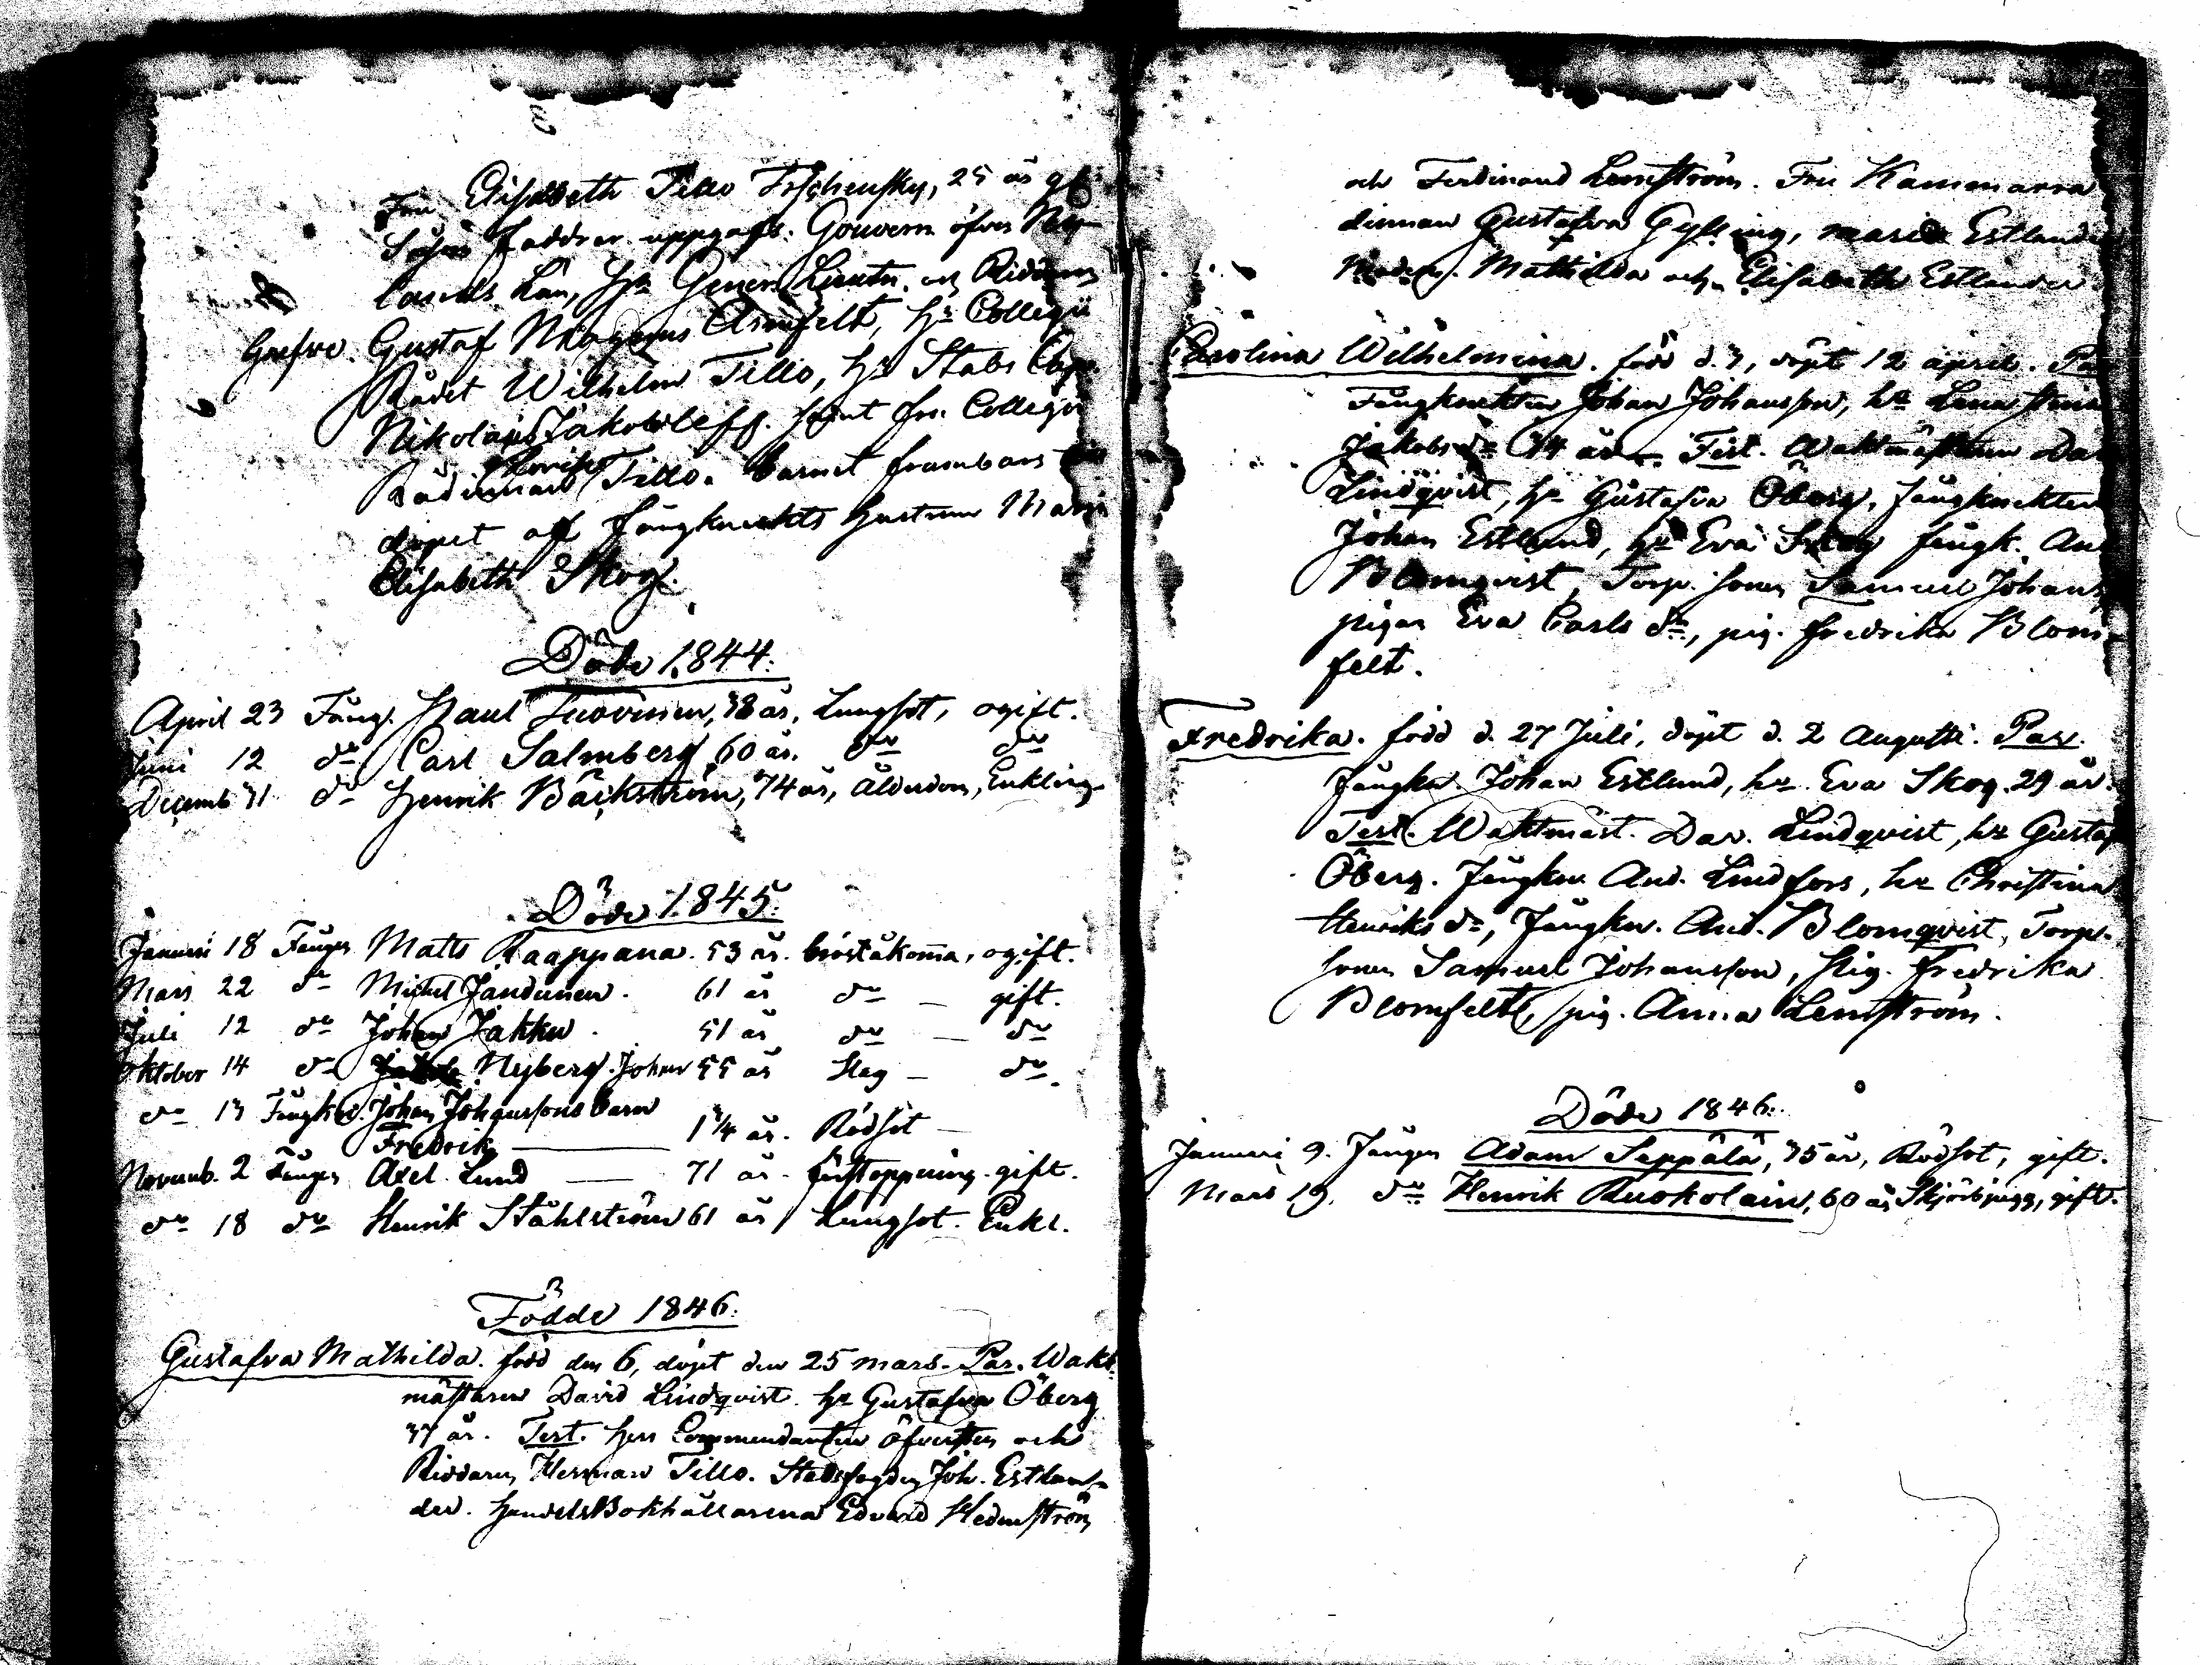 Fru Elisabeth Tillo Tischensky, 25 år gl
Såsom faddrar uppgafs: Gouvern öfver Ny-
lands Län, Hr General Lieutn. och Riddaren
Grefve Gustaf Magnus Armfelt, Hr Collegii
Rådet Wilhelm Tillo, Hr Stabs Cap.
Nikolaus Jakowleff. samt fru Collegii
Rådinnan Tillo. barnet frambars till
dopet af fångknekts hustrun Maria
Elisabeth Skog.
Döde 1844.
April 23 Fång. Paul Tuovinen, 38 år, Lungsot, ogift.
Juni 12 do Carl Salmberg, 60 år. do do
Decemb 31 do Henrik Bäckström, 74 år, Ålderdom, Enkling.
Döde 1845.
Januari 18 Fången Matts Raappana. 53 år. bröståkomma, ogift.
Mars 22 do Michel Janduinen. 61 år do — gift.
Juli 12 do Johan Jakku. 51 år do — do
Oktober 14 do Nyberg. Johan 55 år Slag — do.
do 13 Fångkn. Johan Johanssons barn
Fredrik — 1 3/4 år. Rödsot —
Novemb. 2 Fången Axel Lund — 71 år. förstoppning. gift.
do 18 do Henrik Ståhlström 61 år Lungsot. Enkl.
Födde 1846.
Gustafva Mathilda. född den 6, döpt den 25 mars. Par. Wakt-
mästaren David Lindqvist. hu Gustafva Öberg
37 år. Test. Herr Commendanten Öfversten och
Riddaren Herman Tillo. Stadsfogden Joh. Estlan-
der. HandelsBokhållarena Edvard Hedenström
och Ferdinand Lemström. Fru Kammarrå
dinnan Gustafva Gylling, Maria Estlander
Mathilda och Elisabeth Estlander
Carolina Wilhelmina. född d. 3, döpt 12 april. Par
Fångknekten Johan Johansson, hu Lena Stina
Jakobs dr 44 år. Test. Waktmästaren Dav
Lindqvist, hu Gustafva Öberg, fångknekten
Johan Estlund, hu Eva Skog fångk. And
Blomqvist, Torp. sonen Samuel Johans
pigan Eva Carls dr, pig. Fredrika Blom-
felt.
Fredrika. född d. 27 Juli, döpt d. 2 Augusti. Par.
Fångkn. Johan Estlund, hu. Eva Skog. 29 år.
Test. Waktmäst. Dav. Lindqvist, hu Gustaf
Öberg. Fångkn. And. Lindfors, hu Christina
Henriks dr, Fångkn. And. Blomqvist, Torp.
sonen Samuel Johansson, Pig. Fredrika
Blomfelt, pig. Anna Lemström.
Döde 1846.
Januari 9. Fången Adam Seppälä, 75 år, Rödsot, gift.
Mars 19. do Henrik Ruokolain, 60 år Skjörbjugg, gift.